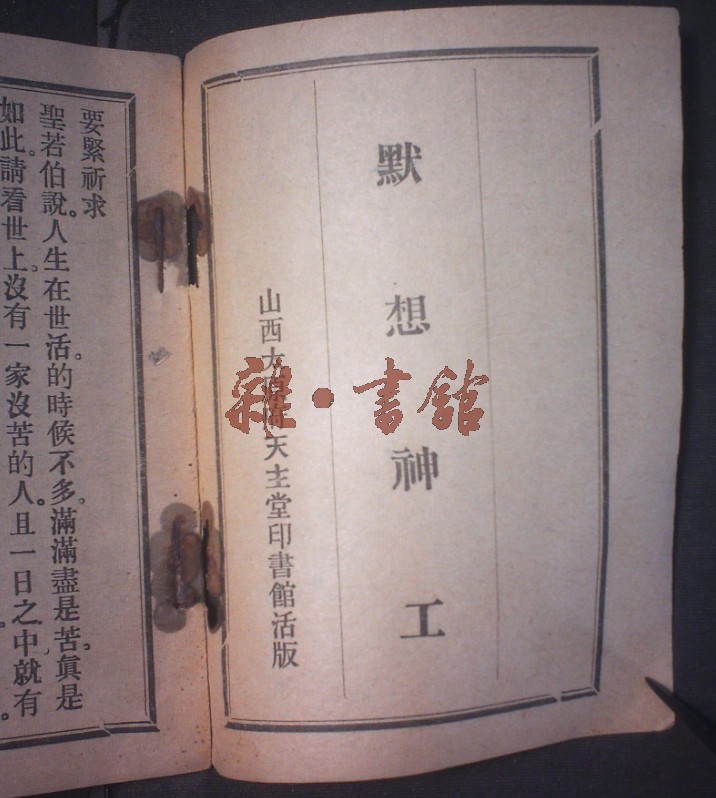 默想神工
山西太原府天主堂印書館活版
要緊祈求
聖若伯說。人生在世活的時候不多。滿滿盡是苦。眞是
如此。請看世上。沒有一家沒苦的人。且一日之中。就有。
雜·書館